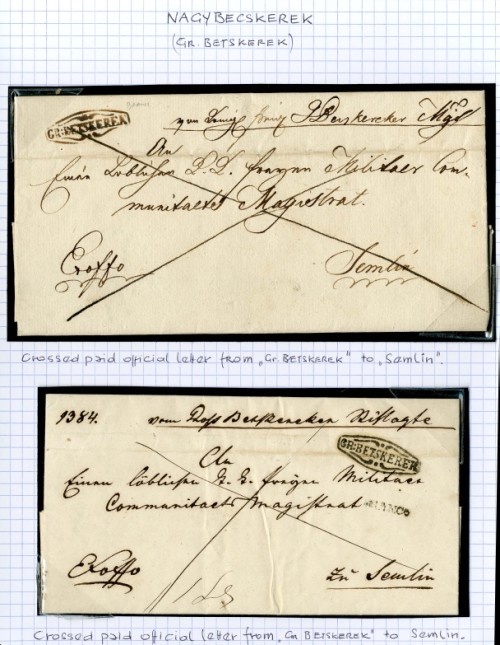 NAGYBECSKEREK
(GR. BETSKEREK)
GR:BETSKEREK
von
An
Einen Löblichen K. K. freyen Militaer Com-
munitaets Magistrat.
Exoffo
Semlin
Crossed paid official letter from „GR. BETSKEREK" to „Semlin".
1384. vom Groß Betskereker
GR:BEZSKEREK
An
Einen löblichen K. K. freyen Militaer
Communitaets Magistrat
FRANCO
Exoffo
zu Semlin
Crossed paid official letter from „GR BETSKEREK" to Semlin.